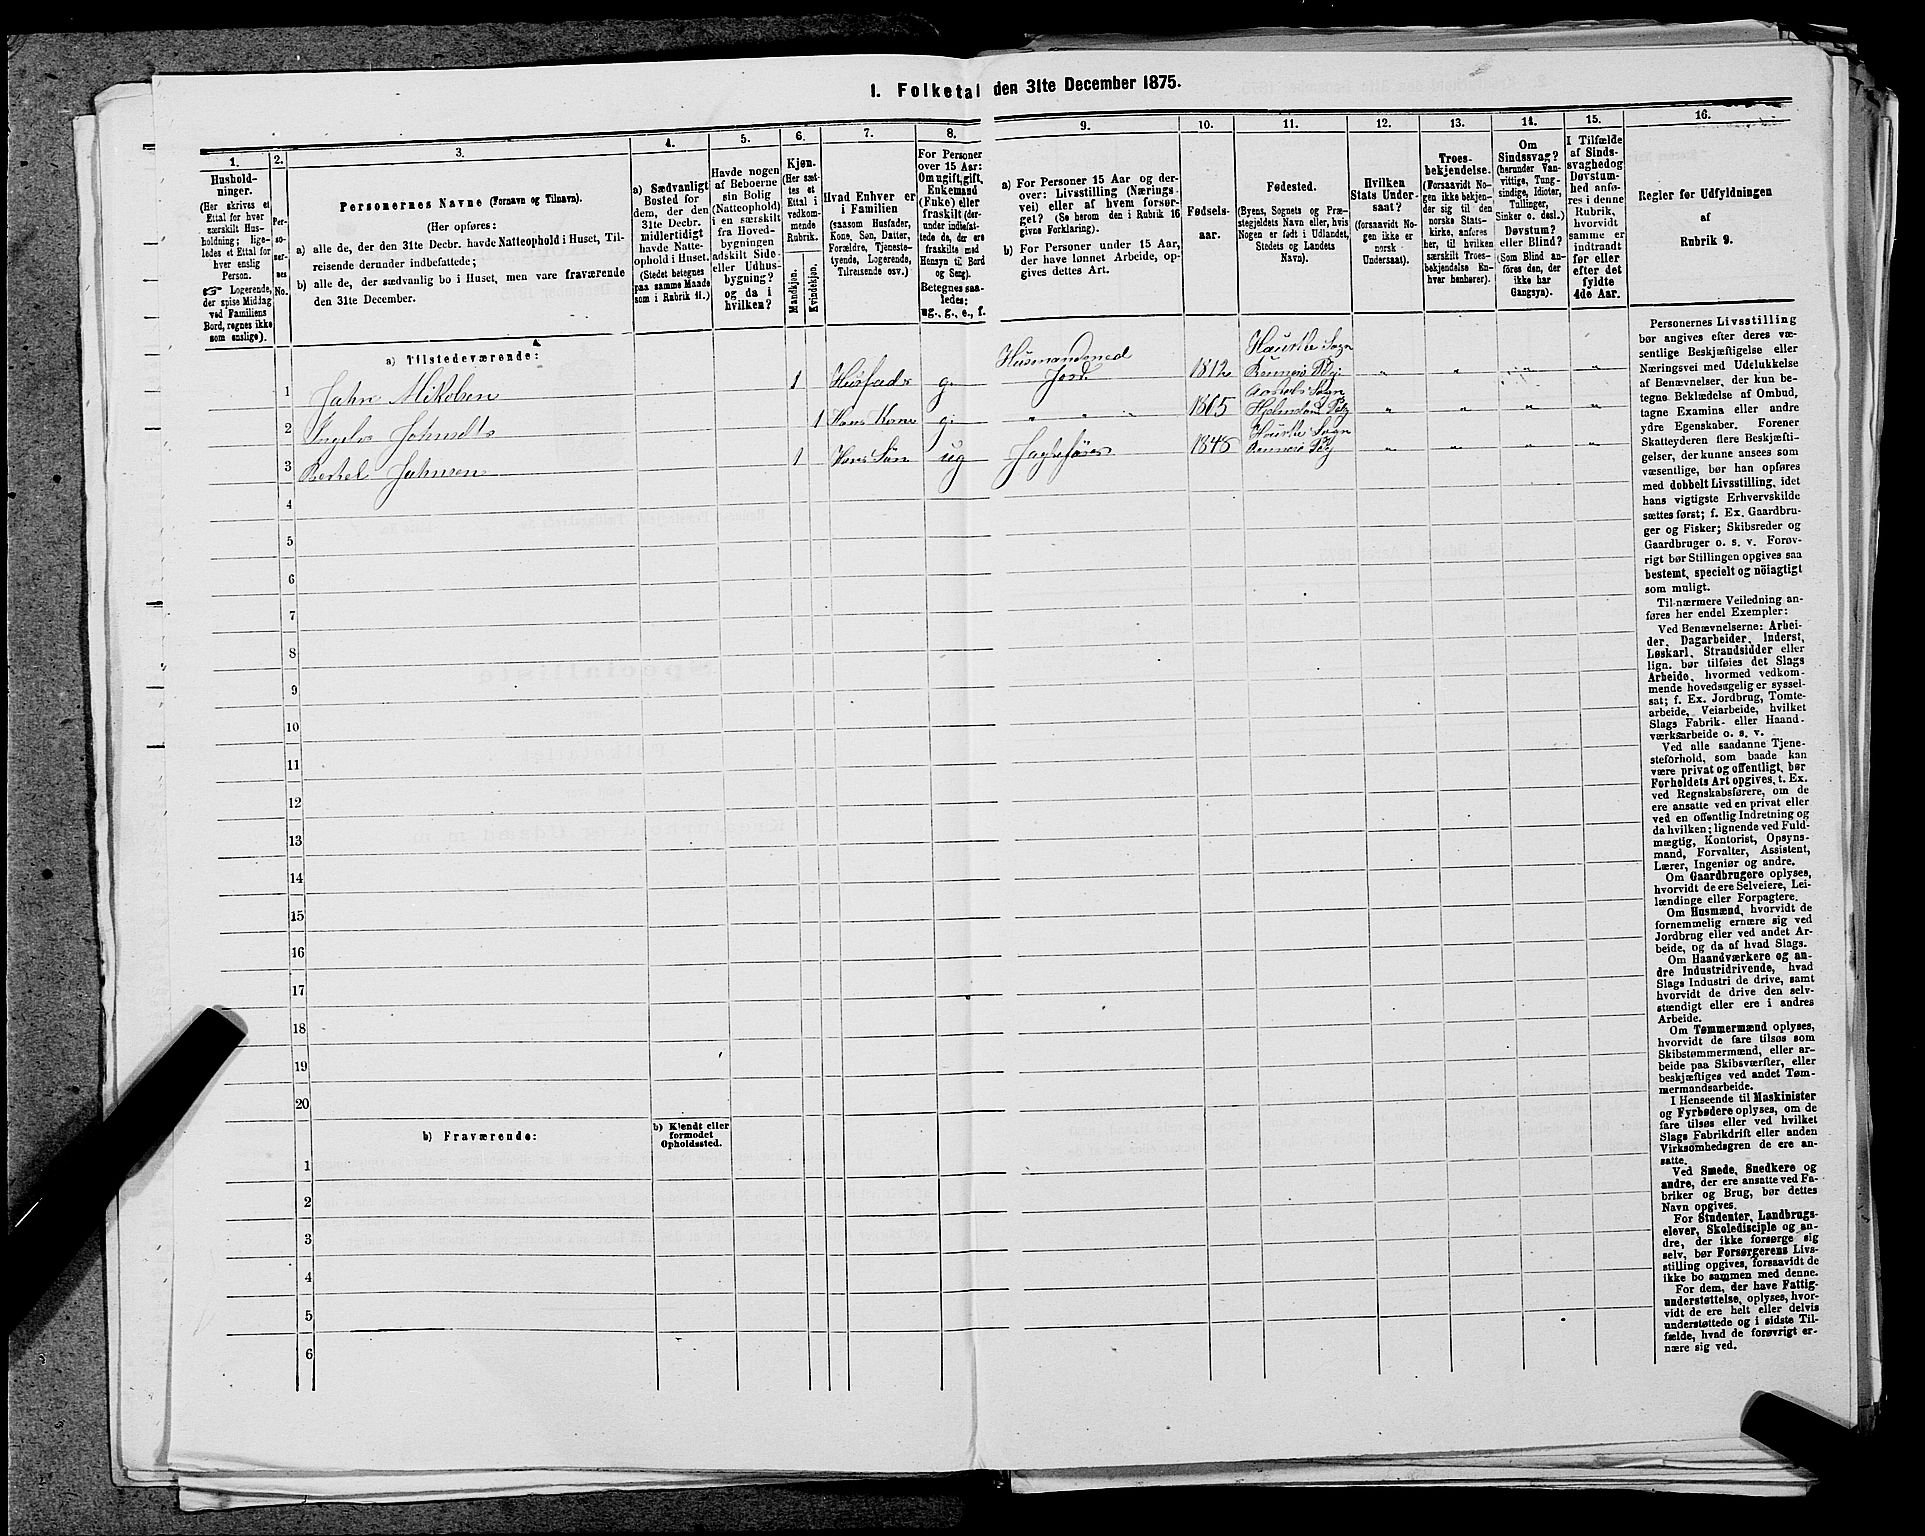 1. Folketal den 31te December 1875.
1.
2.
3.
4.
5.
6.
7.
8.
9.
10.
11.
12.
13.
14.
15.
16.
Husholdninger.
(Her skrives et
Ettal for hver
særskilt Husholdning;
ligeledes et Ettal for
hver enslig
Person.
☞ Logerende,
der spise Middag
ved Familiens
Bord, regnes ikke
som enslige).
Personernes No.
Personernes Navne (Fornavn og Tilnavn).
(Her opføres:
a) alle de, der den 31te Decbr. havde Natteophold i Huset, Tilreisende derunder indbefattede;
b) alle de, der sædvanlig bo i Huset, men vare fraværende
den 31te December.
a) Sædvanligt
Bosted for
dem, der den
31te Decbr.
midlertidigt
havde Natteophold i Huset.
(Stedet betegnes
paa samme Maade
som i Rubrik 11.)
Havde nogen
af Beboerne
sin Bolig
(Natteophold)
i en særskilt
fra Hovedbygningen
adskilt Side-
eller Udhusbygning?
og da i
hvilken?
Kjøn.
(Her sættes et
Ettal i
vedkommende
Rubrik.
Mandkjøn.
Kvindekjøn.
Hvad Enhver er
i Familien
(saasom Husfader,
Kone, Søn, Datter,
Forældre, Tjenestetyende, Logerende,
Tilreisende osv.)
For Personer
over 15 Aar:
Om ugift, gift,
Enkemand
(Enke) eller
fraskilt (derunder indbefattede de, der ere
fraskilte med
Hensyn til Bord
og Seng).
Betegnes saaledes:
ug., g., e., f.
a) For Personer 15 Aar og derover: Livsstilling (Næringsvei) eller af hvem forsørget? (Se herom den i Rubrik 16
givne Forklaring).
b) For Personer under 15 Aar,
der have lønnet Arbeide, opgives dettes Art.
Fødselsaar.
Fødested.
(Byens, Sognets og Præstegjeldets Navn eller, hvis
Nogen er født i Udlandet,
Stedets og Landets
Navn).
Hvilken
Stats Undersaat?
(forsaavidt Nogen ikke er
norsk
Undersaat).
Troesbekjendelse.
(Forsaavidt Nogen ikke bekjender sig til den
norske Statskirke, anføres
her, til hvilken
særskilt Troesbekjendelse Enhver henhører).
Om
Sindssvag?
(herunder Vanvittige, Tungsindige, Idioter,
Tullinger,
Sinker o. desl.)
Døvstum?
eller Blind?
(Som Blind anføres den, der
ikke har
Gangsyn).
I Tilfælde
af Sindssvaghed og
Døvstumhed anføres i denne
Rubrik,
hvorvidt
samme er
indtraadt
før eller
efter det
fyldte
4de Aar.
Regler for Udfyldningen
af
Rubrik 9.
a) Tilstedeværende:
1 Jahn Mikelsen 1 Husfader g. Husmand med Jord 1812 Hauske Sogn Rennesø Pgj. „ „ „ „
2 Johnsdtr 1 Hans Kone g. „ „ „ 1805 Sogn Hjelmeland Pgj „ „ „ „
3 Bertel Jahnsen 1 Hans Søn ug 1848 Hauske Sogn Rennesø Pgj „ „ „ „
4
5
6
7
8
9
10
11
12
13
14
15
16
17
18
19
20
b) Fraværende:
b) Kjendt eller
formodet
Opholdssted.
1
2
3
4
5
6
Personernes Livsstilling
bør angives efter deres væsentlige Beskjæftigelse eller
Næringsvei med Udelukkelse
af Benævnelser, der kun betegne Beklædelse af Ombud,
tagne Examina eller andre
ydre Egenskaber. Forener
Skatteyderen flere Beskjæftigelser, der kunne ansees som
væsentlige, bør han opføres
med dobbelt Livsstilling, idet
hans vigtigste Erhvervskilde
sættes først; f. Ex. Gaardbruger og Fisker; Skibsreder og
Gaardbruger o. s. v. Forøvrigt bør Stillingen opgives saa
bestemt, specielt og nöiagtigt
som muligt.
Til nærmere Veiledning anføres her endel Exempler:
Ved Benævnelserne: Arbeider, Dagarbeider, Inderst,
Løskarl, Strandsidder eller
lign. bør tilføies det Slags
Arbeide, hvormed vedkommende hovedsagelig er sysselsat; f. Ex. Jordbrug, Tomtearbeide, Veiarbeide, hvilket
Slags Fabrik- eller Haandværksarbeide o. s. v.
Ved alle saadanne Tjenesteforhold, som baade kan
være privat og offentligt, bør
Forholdets Art opgives, t. Ex.
ved Regnskabsførere, om de
ere ansatte ved en privat eller
ved en offentlig Indretning og
da hvilken; lignende ved Fuldmægtig, Kontorist, Opsynsmand, Forvalter, Assistent,
Lærer, Ingeniør og andre.
Om Gaardbrugere oplyses,
hvorvidt de ere Selveiere, Leilændinge eller Forpagtere.
Om Husmænd, hvorvidt de
fornemmelig ernære sig ved
Jordbrug eller ved andet Arbeide, og da af hvad Slags.
Om Haandværkere og andre Industridrivende, hvad
Slags Industri de drive, samt
hvorvidt de drive den selvstændigt eller ere i andres
Arbeide.
Om Tømmermænd oplyses,
hvorvidt de fare tilsøs som
Skibstømmermænd, eller arbeide paa Skibsværfter, eller
beskjæftiges ved andet Tømmermandsarbeide.
I Henseende til Maskinister
og Fyrbødere oplyses, om de
fare tilsøs eller ved hvilket
Slags Fabrikdrift eller anden
Virksomhedsgren de ere ansatte.
Ved Smede, Snedkere og
andre, der ere ansatte ved Fabriker og Brug, bør dettes
Navn opgives.
For Studenter, Landbrugselever, Skoledisciple og andre, der ikke forsørge sig
selv, bør Forsørgerens Livsstilling opgives, forsaavidt de
ikke bo sammen med denne.
For dem, der have Fattigunderstøttelse, oplyses, hvorvidt de ere helt eller delvis
understøttede og i sidste Tilfælde, hvad de forøvrigt ernære sig ved.